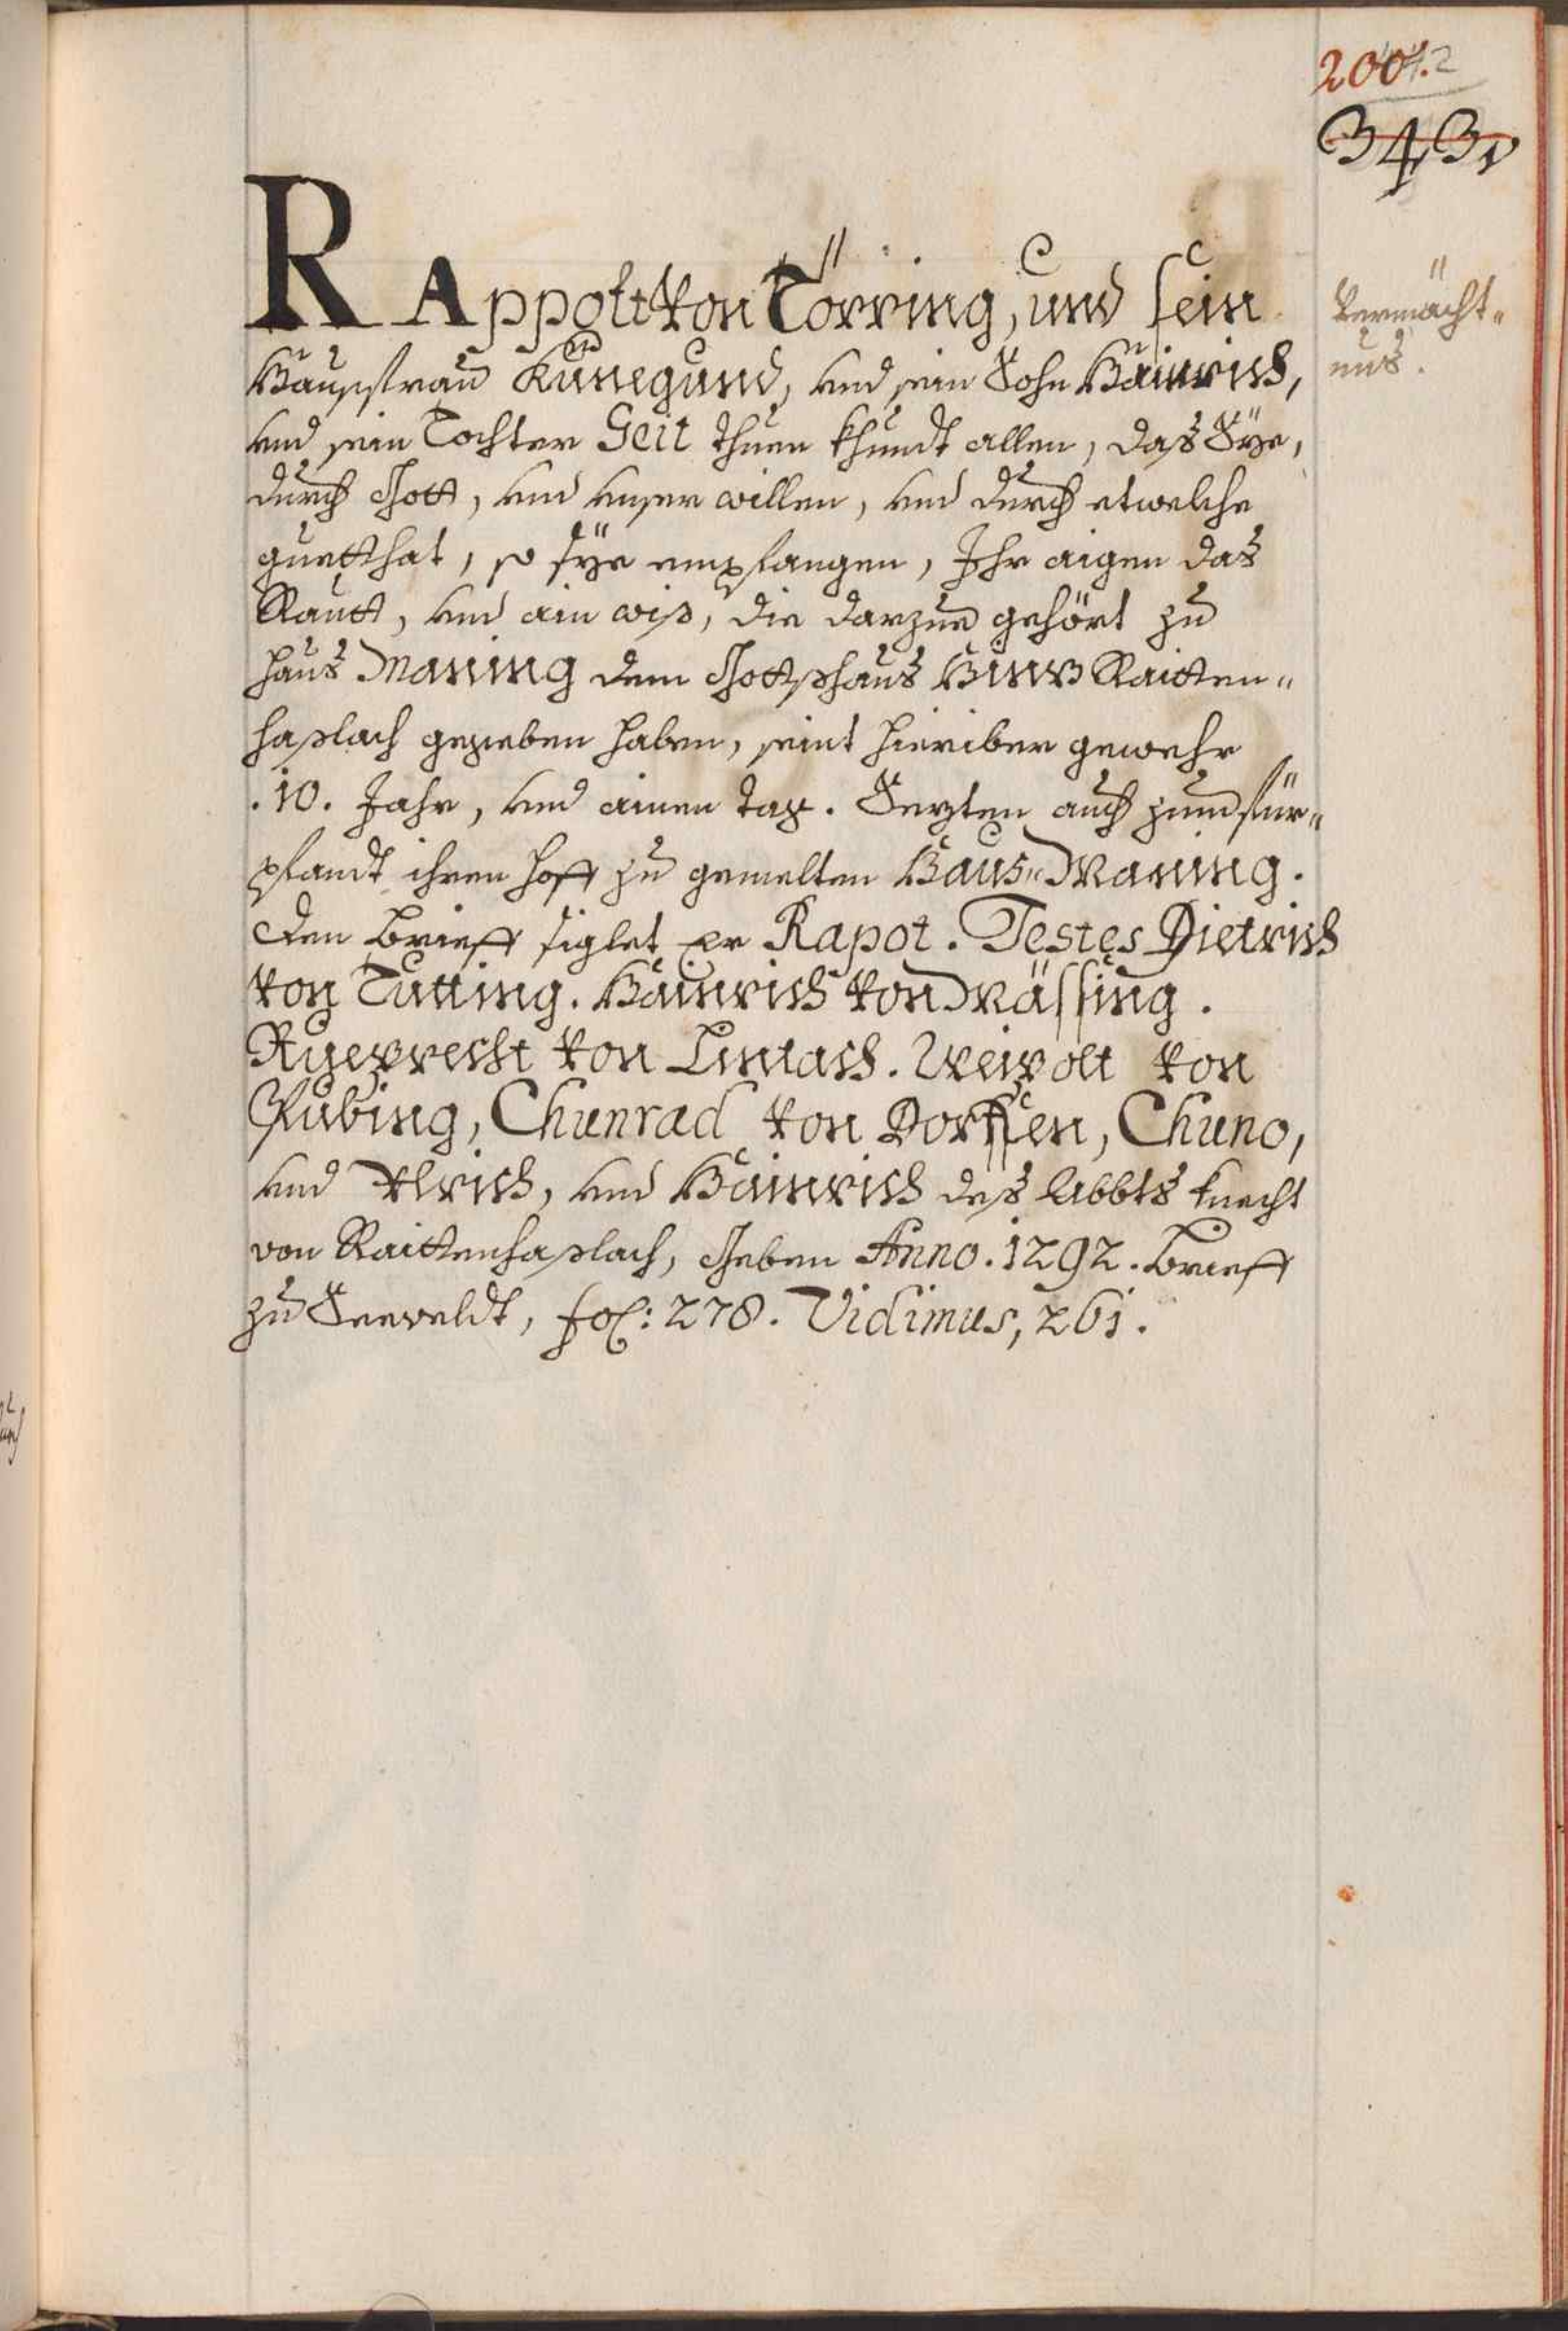 200.
343.
RAppolt von Törring, und sein
Haußfrau Kunegund, vnd sein Sohn Hainrich,
vnd sein Tochter Geit thuen khundt allen, das Sÿe,
durch Gott, vnd vnser willen, vnd durch etwelche
guetthat, so sÿe empfangen, Ihr aigen das
Rautt, vnd ain wiß, die darzue gehört zu
Haus Maning dem Gottshaus hinz Raitten-
haslach gegeben haben, seint hieriber gewehr
.10. Jahr, vnd ainen tag. Sezten auch zum für-
pfandt ihren Hoff zu gemelten Haus-Maning.
Den brieff siglet er Rapot. Testes Dietrich
von Tutting. Hainrich von Mässing.
Rueprecht von Lintach. Weivolt von
Rubing, Chunrad von Dorffen, Chuno,
vnd Vlrich, vnd Hainrich des Abbts knecht
von Raittenhaslach, Geben Anno. 1292. brieff
zu Seeveldt, fol: 278. Vidimus, 261.
Vermächt-
nus.